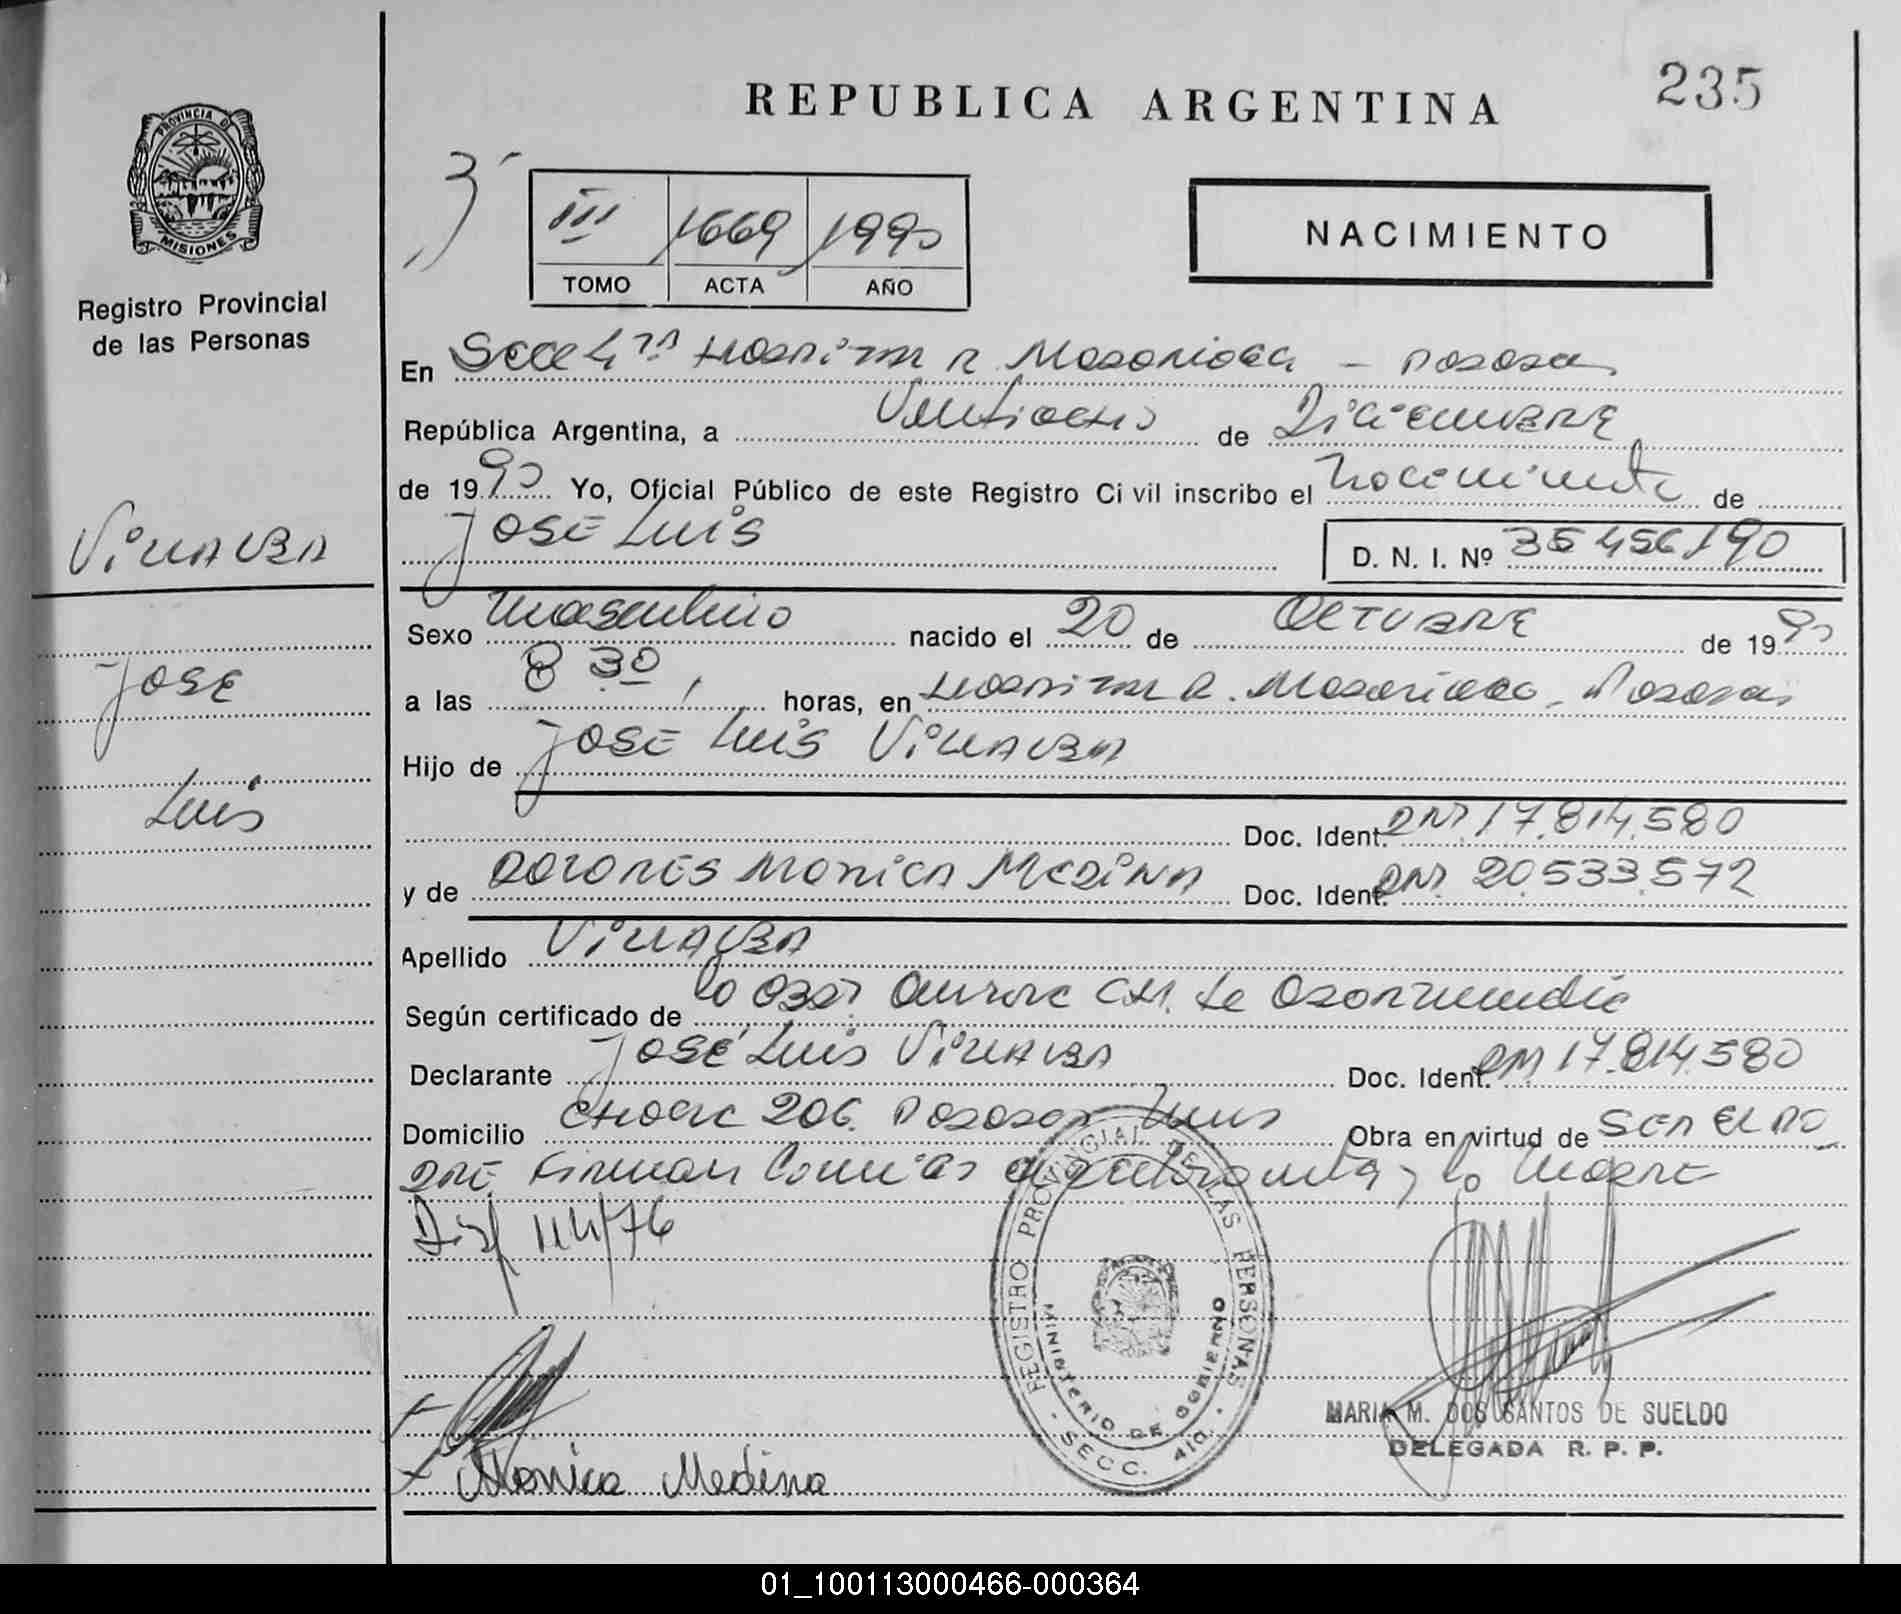 235
REPUBLICA ARGENTINA
PROVINCIA DE
MISIONES
Registro Provincial
de las Personas
III 1669 1990
TOMO ACTA AÑO
NACIMIENTO
En Secc 4ta Hospital R. Madariaga - Posadas
República Argentina, a Veintiocho de Diciembre
de 1990 Yo, Oficial Público de este Registro Civil inscribo el nacimiento de
JOSE LUIS
D. N. I. Nº 35 456 190
VILLALBA
JOSE
Luis
Sexo masculino nacido el 20 de OCTUBRE de 1990
a las 8 30, horas, en Hospital R. Madariaga - Posadas
Hijo de JOSE LUIS VILLALBA
Doc. Ident. DNI 17.814.580
y de DOLORES MONICA MEDINA Doc. Ident. DNI 20.533.572
Apellido VILLALBA
Según certificado de la Obst.
Declarante JOSÉ LUIS VILLALBA Doc. Ident. DNI 17.814.580
Domicilio 206 Posadas Obra en virtud de SER EL PA
DRE. Firman la madre
114/76
REGISTRO PROVINCIAL DE LAS PERSONAS
MINISTERIO DE GOBIERNO
- SECC. 4ta. -
MARIA M. DOS SANTOS DE SUELDO
DELEGADA R. P. P.
Monica Medina
01_100113000466-000364